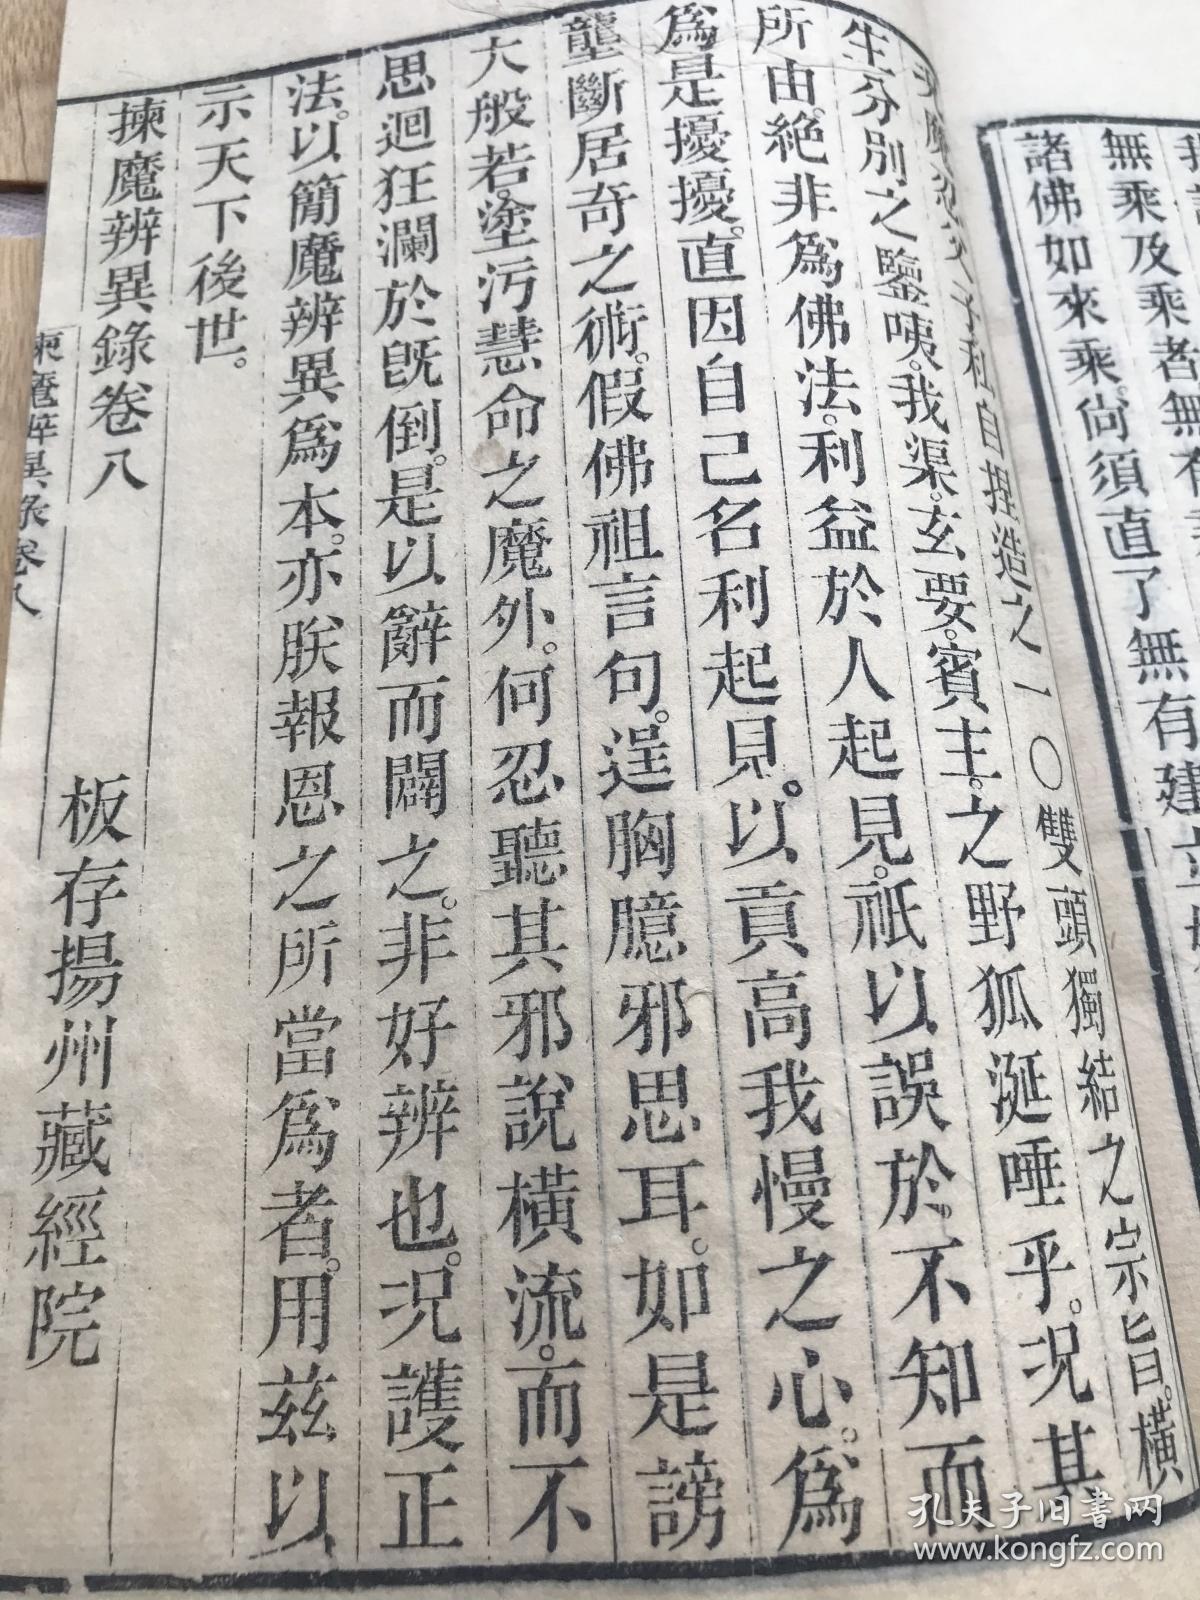 無乘及乘者無有
諸佛如來乘。尚須直了無有建立
子私自捏造之一〇雙頭獨結之宗旨。橫
生分別之鹽咦。我渠。玄要。賓主。之野狐涎唾乎。況其
所由。絶非爲佛法。利益於人起見。祇以誤於。不知而
爲是擾擾。直因自己名利起見。以貢高我慢之心。爲
壟斷居奇之術。假佛祖言句。逞胸臆邪思耳。如是謗
大般若。塗污慧命之魔外。何忍聽其邪說橫流。而不
思迴狂瀾於旣倒。是以辭而闢之。非好辨也。況護正
法。以簡魔辨異爲本。亦朕報恩之所當爲者。用茲以
示天下後世。
揀魔辨異錄卷八
板存揚州藏經院
揀魔辨異錄卷八
孔夫子旧书网
www.kongfz.com